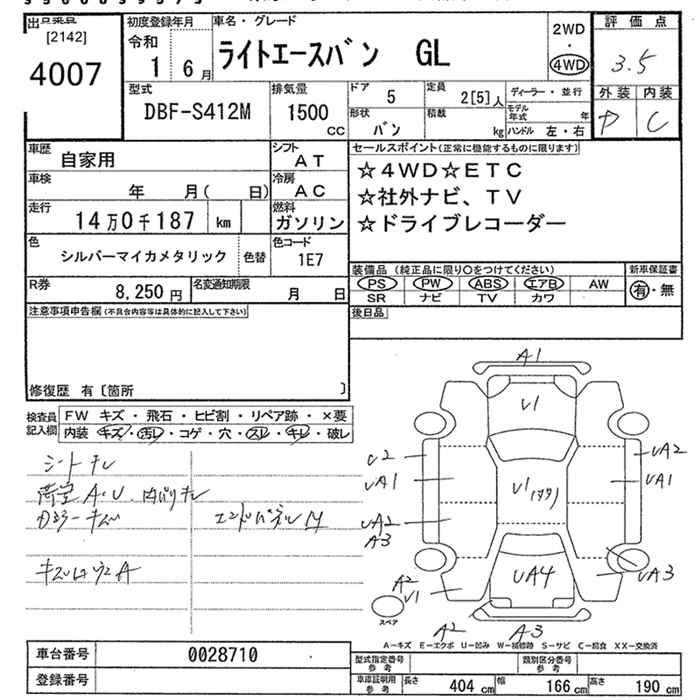 出品票
初度登録年月
車名・グレード
評価点
[2142]
4007
令和
1 6月
ライトエースバン GL
2WD
・
4WD
3.5
外装 内装
C
型式
DBF-S412M
排気量
1500
CC
ドア
5
定員
2[5]人
ディーラー・並行
形状
バン
積載
kg
モデル年式
年
ハンドル 左・右
車歴
自家用
シフト
AT
車検
年 月( 日)
冷房
AC
走行
14万0千187 km
燃料
ガソリン
色
シルバーマイカメタリック
色替
色コード
1E7
R券
8,250円
名変通知期限
月 日
セールスポイント(正常に機能するものに限ります)
☆4WD☆ETC
☆社外ナビ、TV
☆ドライブレコーダー
装備品 (純正品に限り○をつけてください)
新車保証書
PS PW ABS エアB AW
SR ナビ TV カワ
有・無
後日品
注意事項申告欄(不具合内容等は具体的に記入して下さい)
修復歴 有〔箇所 〕
検査員記入欄
FW キズ・飛石・ヒビ割・リペア跡・×要
内装 キズ・汚レ・コゲ・穴・スレ・キレ・破レ
シートナレ
荷室A.U.内バリキレ
エンドパネルM
A1
V1
U2
UA1
UA2
A3
UA2
UA1
V1(99)
UA4
UA3
A2
V1
スペア
A2
A3
A-キズ E-エクボ U-凹み W-補修跡 S-サビ C-腐食 XX-交換済
車台番号
0028710
登録番号
型式指定番号参考
類別区分番号参考
車庫証明用参考
長さ 404 cm
幅 166 cm
高さ 190 cm